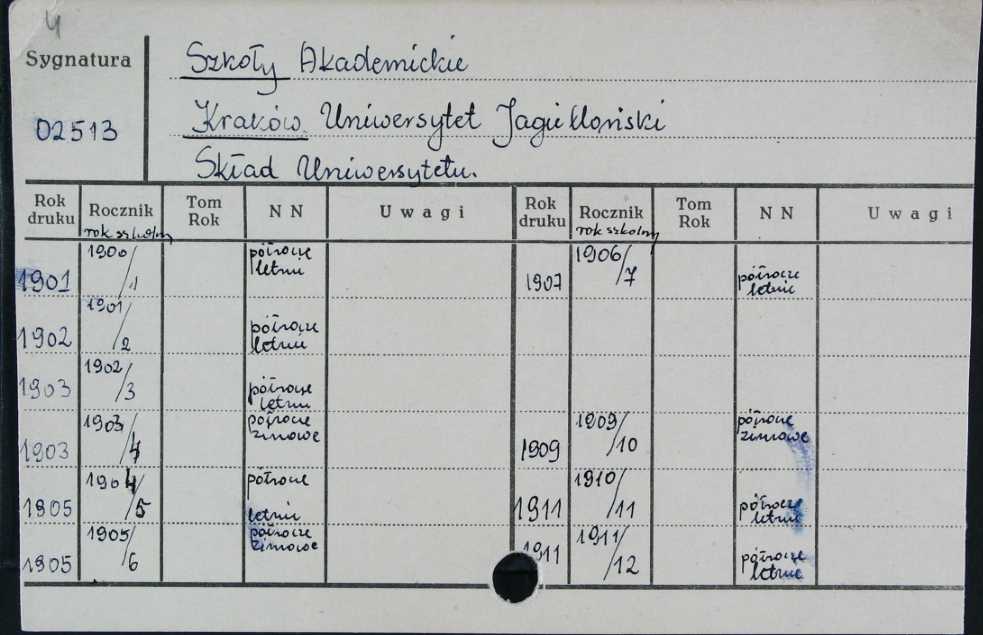 4
Sygnatura
02513
Szkoły Akademickie
Kraków. Uniwersytet Jagielloński
Skład Uniwersytetu.
Rok druku Rocznik Tom Rok NN Uwagi Rok druku Rocznik Tom Rok NN Uwagi
rok szkolny rok szkolny
1901 1900/1 półrocze letnie 1907 1906/7 półrocze letnie
1902 1901/2 półrocze letnie
1903 1902/3 półrocze letnie
1903 1903/4 półrocze zimowe 1909 1909/10 półrocze zimowe
1905 1904/5 półrocze letnie 1911 1910/11 półrocze letnie
1905 1905/6 półrocze zimowe 1911 1911/12 półrocze letnie